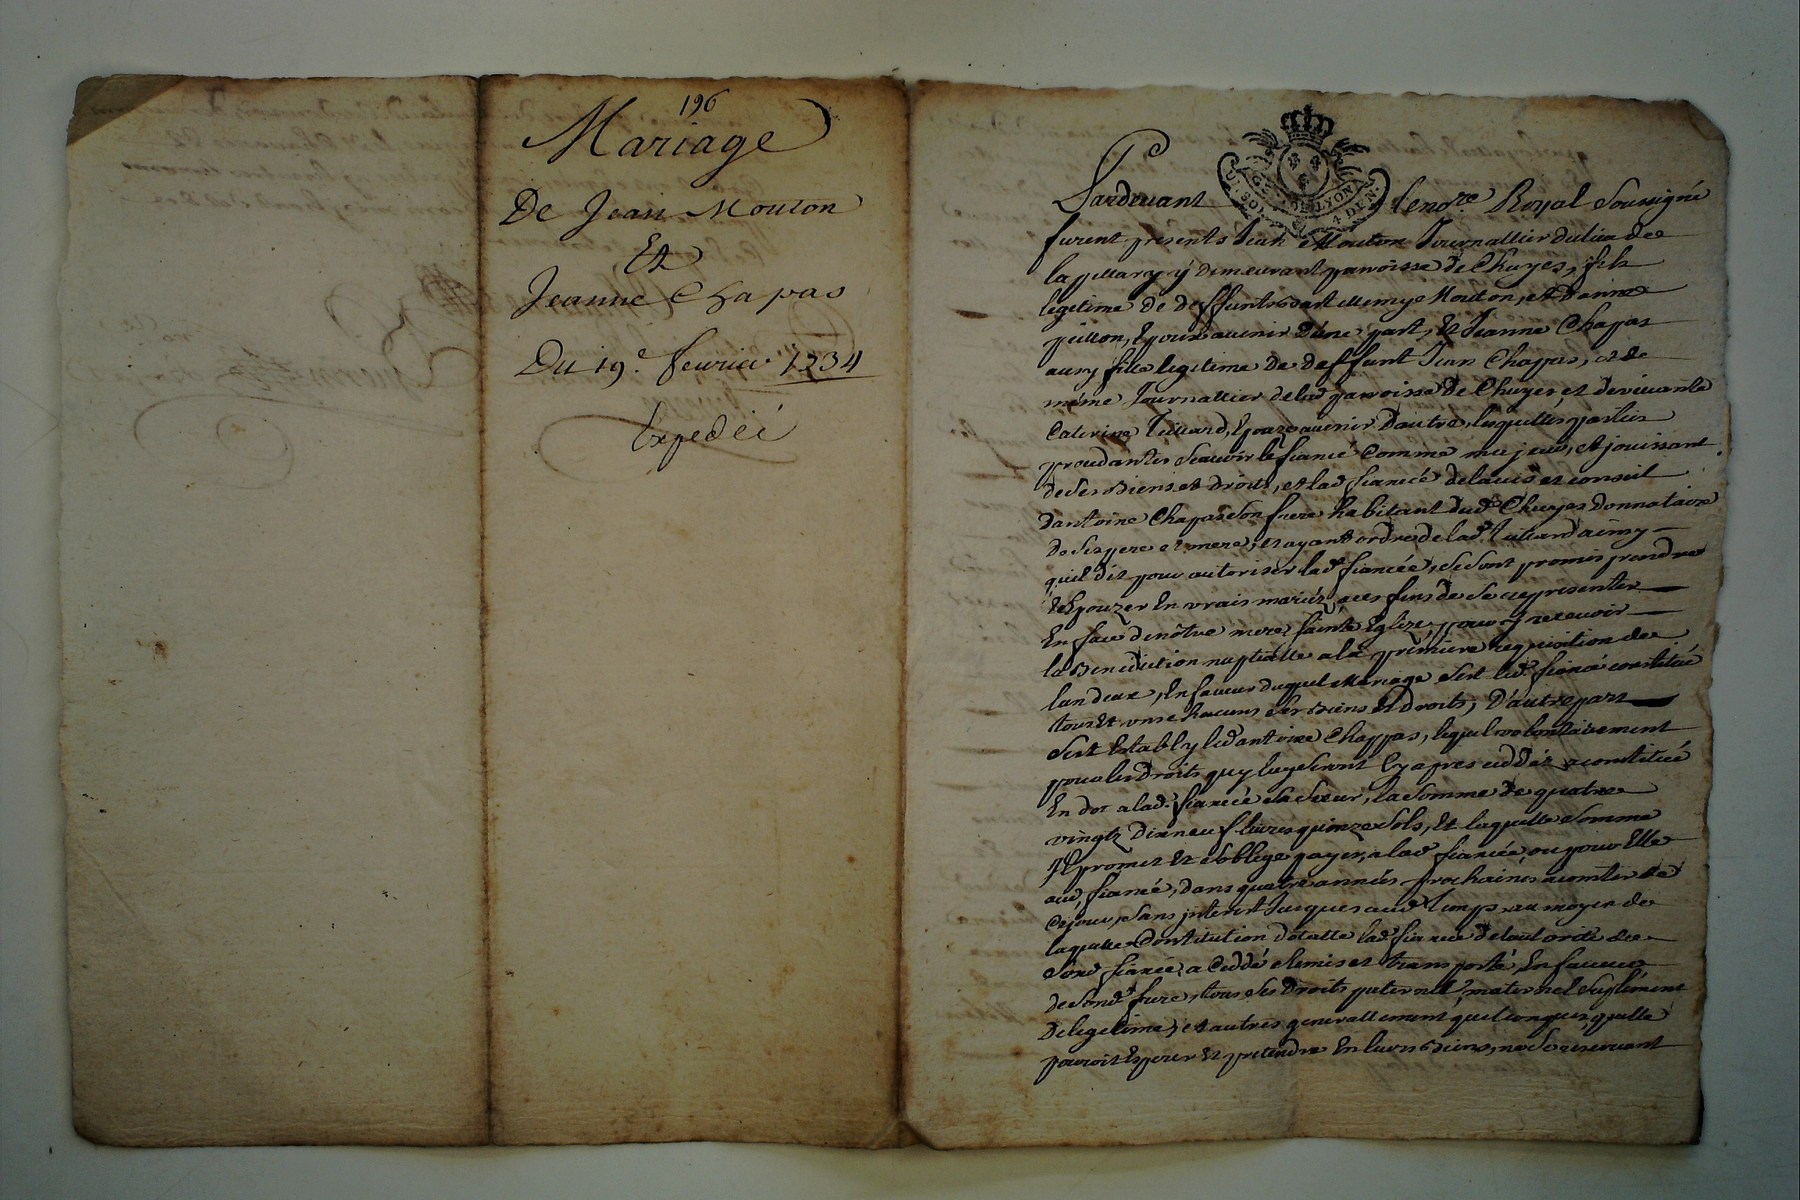 196
Mariage
De Jean Mouton
Et
Jeanne Chapas
Du 19e. fevrier 1734
Expedié
GEN. DE LYON
UN SOL 4 DEN.
Pardevant le nore. Royal Soussigné
furent presents Jean Mouton Journallier du lieu de
y demeurant parroisse de Chuyes, fils
legitime de deffunts Mouton, et d'anne
, Epoux avenir d'une part, Et Jeanne Chapas
aussy fille legitime de deffunt Jean Chapas, de
même Journallier de lad parroisse de Chuyes et de vivante
Caterine Julliard, Epouze avenir d'autre, lesquelles parties
procedantes Scavoir le fiancé comme majeur, et jouissant
de Ses Biens et droits, et lad fiancée de lavis et conseil
dantoine Chapas Son frere habitant dud Chuyes donnataire
de Ses pere et mere, et ayant ordre de lad Julliard ainsy
quil dit pour autoriser lad fiancée, Se Sont promis prendre
et Epouzer En vrais mariez, a ces fins de Se representer
En face de nôtre mere Sainte Eglize, pour y recevoir
la Benediction nuptialle a la premiere requisition de
lun deux, En faveur duquel Mariage Sest led. fiancé constitué
tous Et uns chacuns Ses Biens Et droits, D'autre part
Sest Estably led antoine Chappas, lequel volontairement
pour les Droits quy luy Seront Cy apres ceddéz a constitué
En dot a lad. fiancée Sa Soeur, la Somme de quatre
vingtz Dixneuf livres quinze Sols, Et laquelle Somme
Il promet Et Soblige payer, a lad fiancée, ou pour Elle
aud, fiancé, dans quatre années prochaines a comter de
Ce jour, Sans jnterest Jusques aud temps, au moyen de
laquelle Constitution dotalle lad fiancée de lautorité de
Sond fiancé, a Ceddé et remis et transporté, En faveur
de Sond frere, tous Ses Droits paternel, maternel Suplément
De legitime, et autres generallement quelconques, quelle
pouroit Esperer Et pretendre En leurs Biens, ne Se reservant